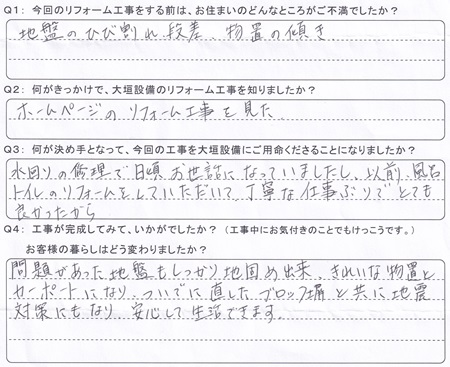 Q1：今回のリフォーム工事をする前は、お住まいのどんなところがご不満でしたか？
地盤のひび割れ、段差、物置の傾き
Q2：何がきっかけで、大垣設備のリフォーム工事を知りましたか？
ホームページのリフォーム工事を見た
Q3：何が決め手となって、今回の工事を大垣設備にご用命くださることになりましたか？
水回りの修理で日頃お世話になっていましたし、以前、風呂
トイレのリフォームをしていただいて、丁寧な仕事ぶりでとても
良かったから
Q4：工事が完成してみて、いかがでしたか？（工事中にお気付きのことでもけっこうです。）
お客様の暮らしはどう変わりましたか？
問題があった地盤もしっかり地固め出来、きれいな物置と
カーポートになり、ついでに直したブロック塀と共に地震
対策にもなり、安心して生活できます。